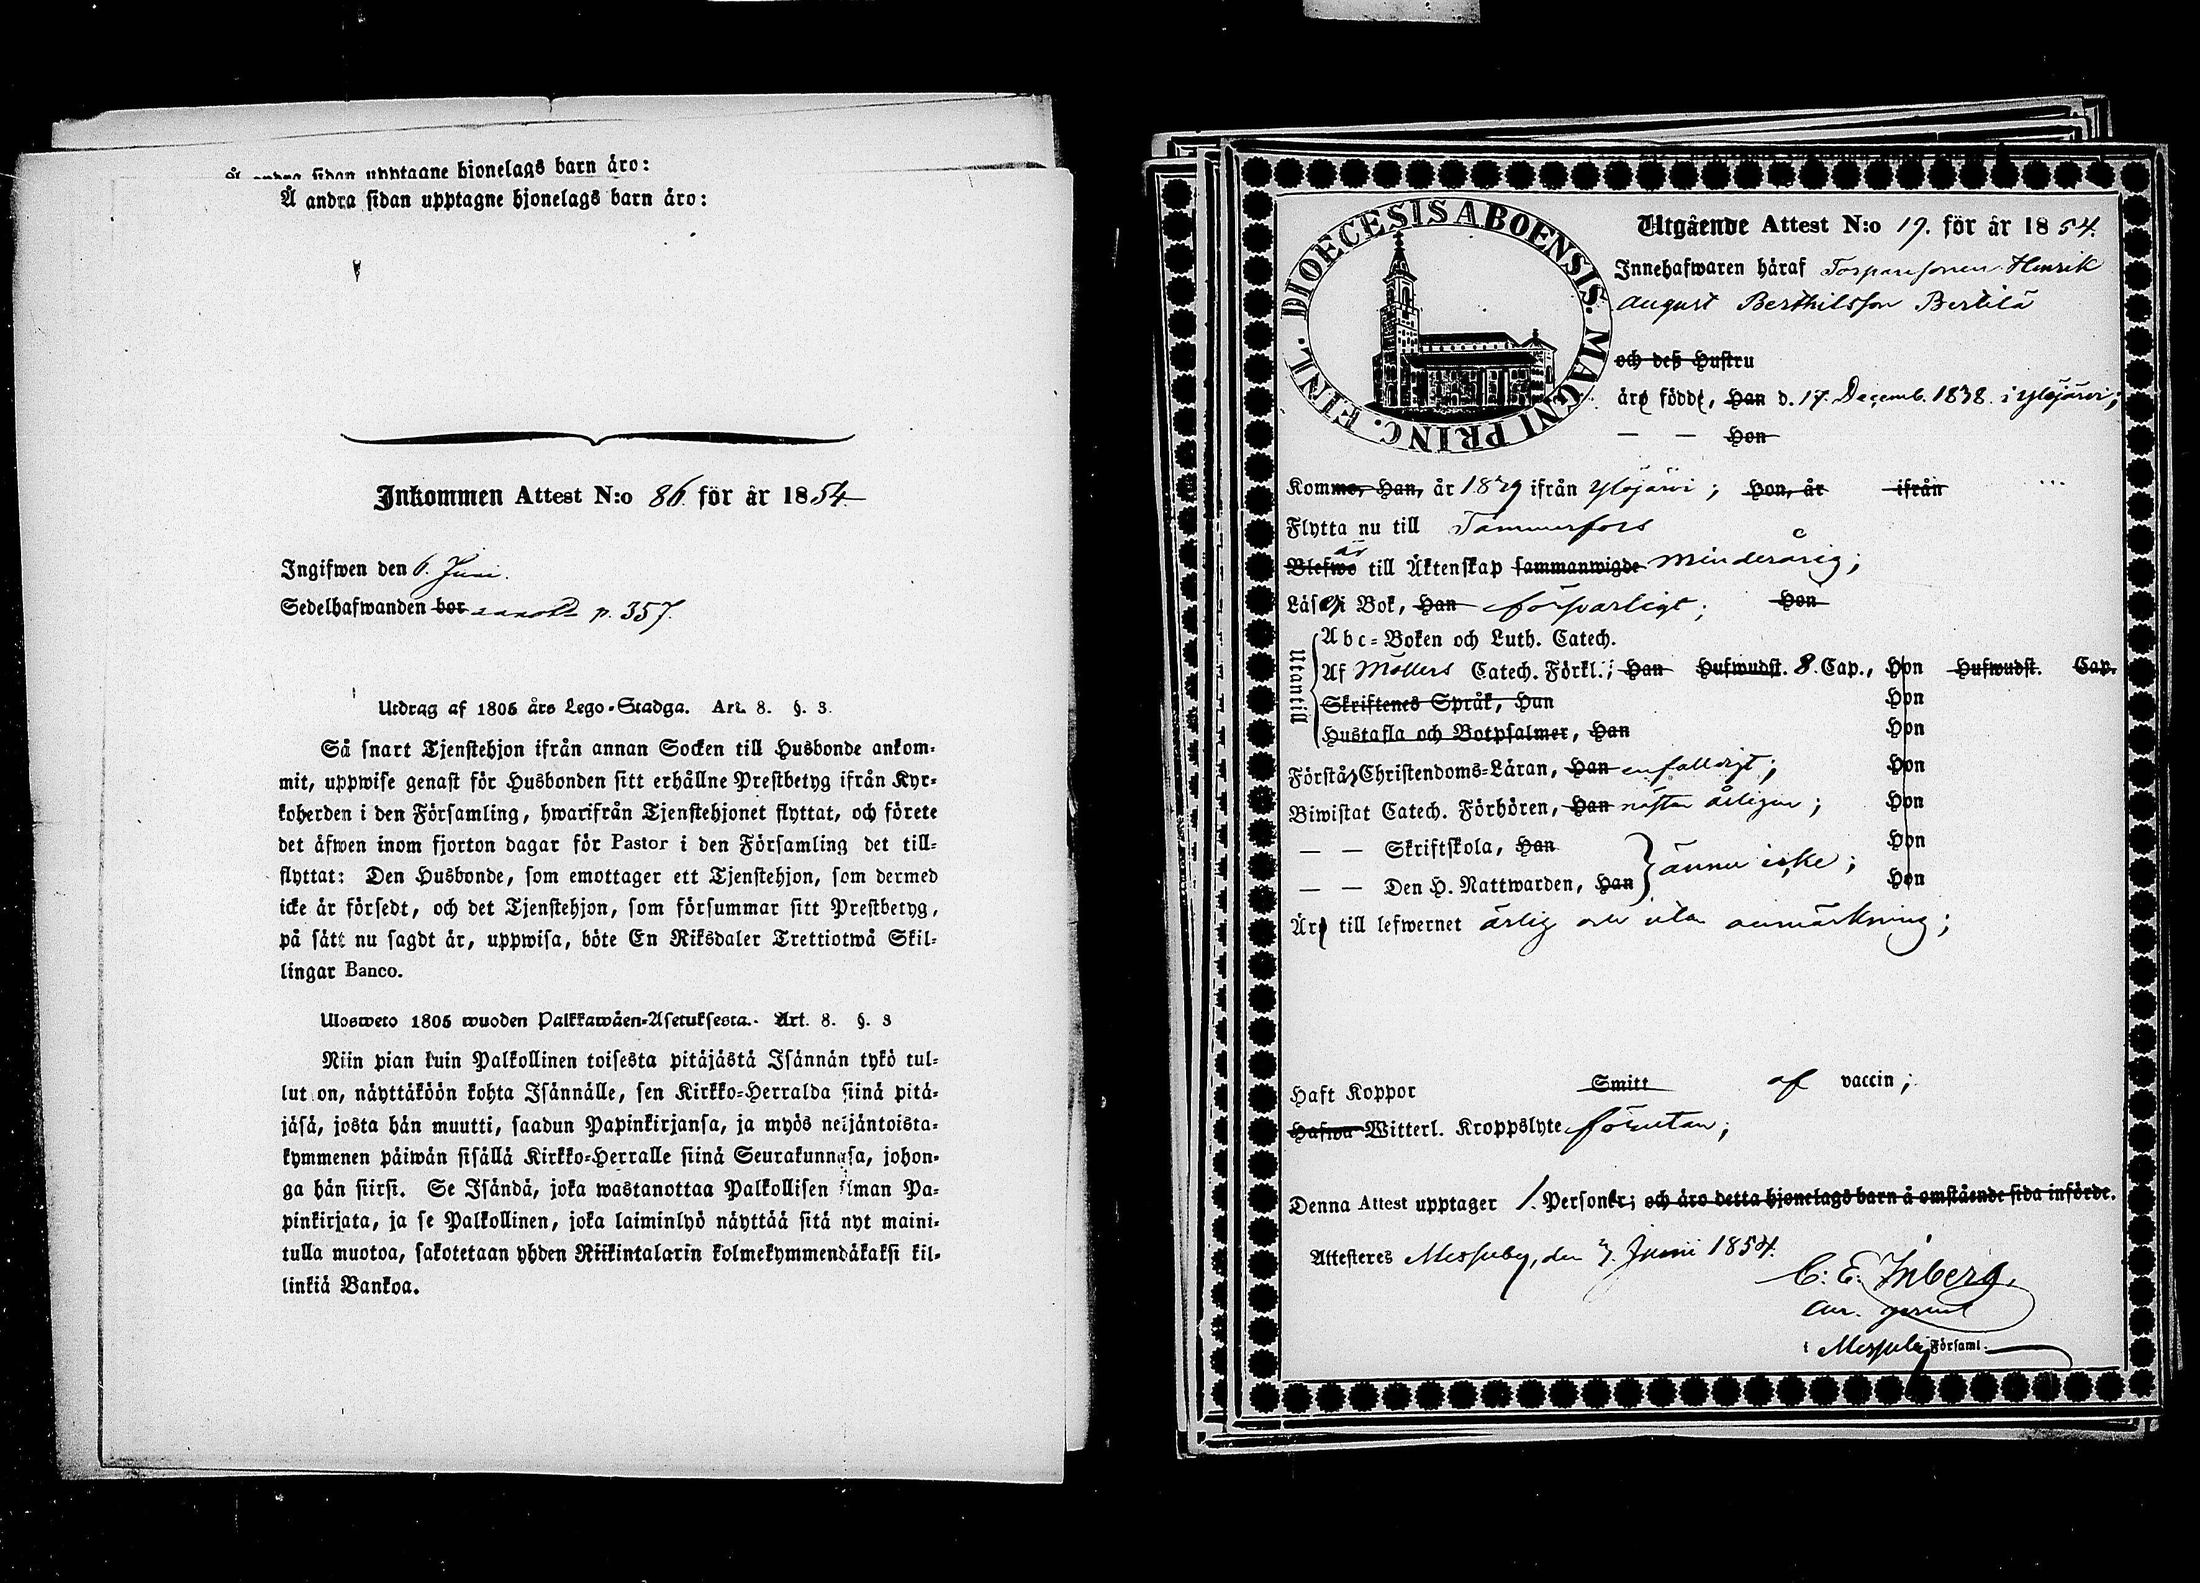 Å andra sidan upptagne hjonelags barn äro:
Å andra sidan upptagne hjonelags barn äro:
Inkommen Attest N:o 86. för år 1854
Ingifwen den 6. Juni.
Sedelhafwanden bor p. 357.
Utdrag af 1805 års Lego-Stadga. Art. 8. §. 3.
Så snart Tjenstehjon ifrån annan Socken till Husbonde ankom-
mit, uppwise genast för Husbonden sitt erhållne Prestbetyg ifrån Kyr-
koherden i den Församling, hwarifrån Tjenstehjonet flyttat, och förete
det äfwen inom fjorton dagar för Pastor i den Församling det till-
flyttat: Den Husbonde, som emottager ett Tjenstehjon, som dermed
icke är försedt, och det Tjenstehjon, som försummar sitt Prestbetyg,
på sätt nu sagdt är, uppwisa, böte En Riksdaler Trettiotwå Skil-
lingar Banco.
Ulosweto 1805 wuoden Palkkawäen-Asetuksesta. Art. 8. §. 3
Niin pian kuin Palkollinen toisesta pitäjästä Isännän tykö tul-
lut on, näyttäköön kohta Isännälle, sen Kirkko-Herralda siinä pitä-
jäsä, josta hän muutti, saadun Papinkirjansa, ja myös neljäntoista-
kymmenen päiwän sisällä Kirkko-Herralle siinä Seurakunnasa, johon-
ga hän siirsi. Se Isändä, joka wastanottaa Palkollisen ilman Pa-
pinkirjata, ja se Palkollinen, joka laiminlyö näyttää sitä nyt maini-
tulla muotoa, sakotetaan yhden Riikintalarin kolmekymmendäkaksi kil-
linkiä Bankoa.
DIOECESIS ABOENSIS. MAGNI PRINC. FINL.
Utgående Attest N:o 19. för år 1854.
Innehafwaren häraf Torparesonen Henrik
August Berthilsson Bertilä
och deß Hustru
äro födde, Han d. 17. Decemb. 1838. i Ylöjärvi;
— — Hon
Kommo, Han, år 1839 ifrån Ylöjärvi; Hon, år ifrån
Flytta nu till Tammerfors
är
Blefwo till Äktenskap sammanwigde minderårig;
Läsa i Bok, Han försvarligt; Hon
Utantill
Abc-Boken och Luth. Catech.
Af Möllers Catech. Förkl.; Han Hufwudst. 8. Cap., Hon Hufwudst. Cap.
Skriftenes Språk, Han Hon
Hustafla och Botpsalmer, Han Hon
Förstå Christendoms-Läran, Han enfalldigt; Hon
Biwistat Catech. Förhören, Han nästan årligen; Hon
— — Skriftskola, Han Hon
ännu icke;
— — Den H. Nattwarden, Han Hon
Äro till lefwernet ärlig och utan anmärkning;
Haft Koppor Smitt af vaccin;
Hafwa Witterl. Kroppslyte förutan;
Denna Attest upptager 1. Personer; och äro detta hjonelags barn å omstående sida införde.
Attesteres Messuby, den 3. Juni 1854.
C. E. Inberg.
i Messuby Församl.